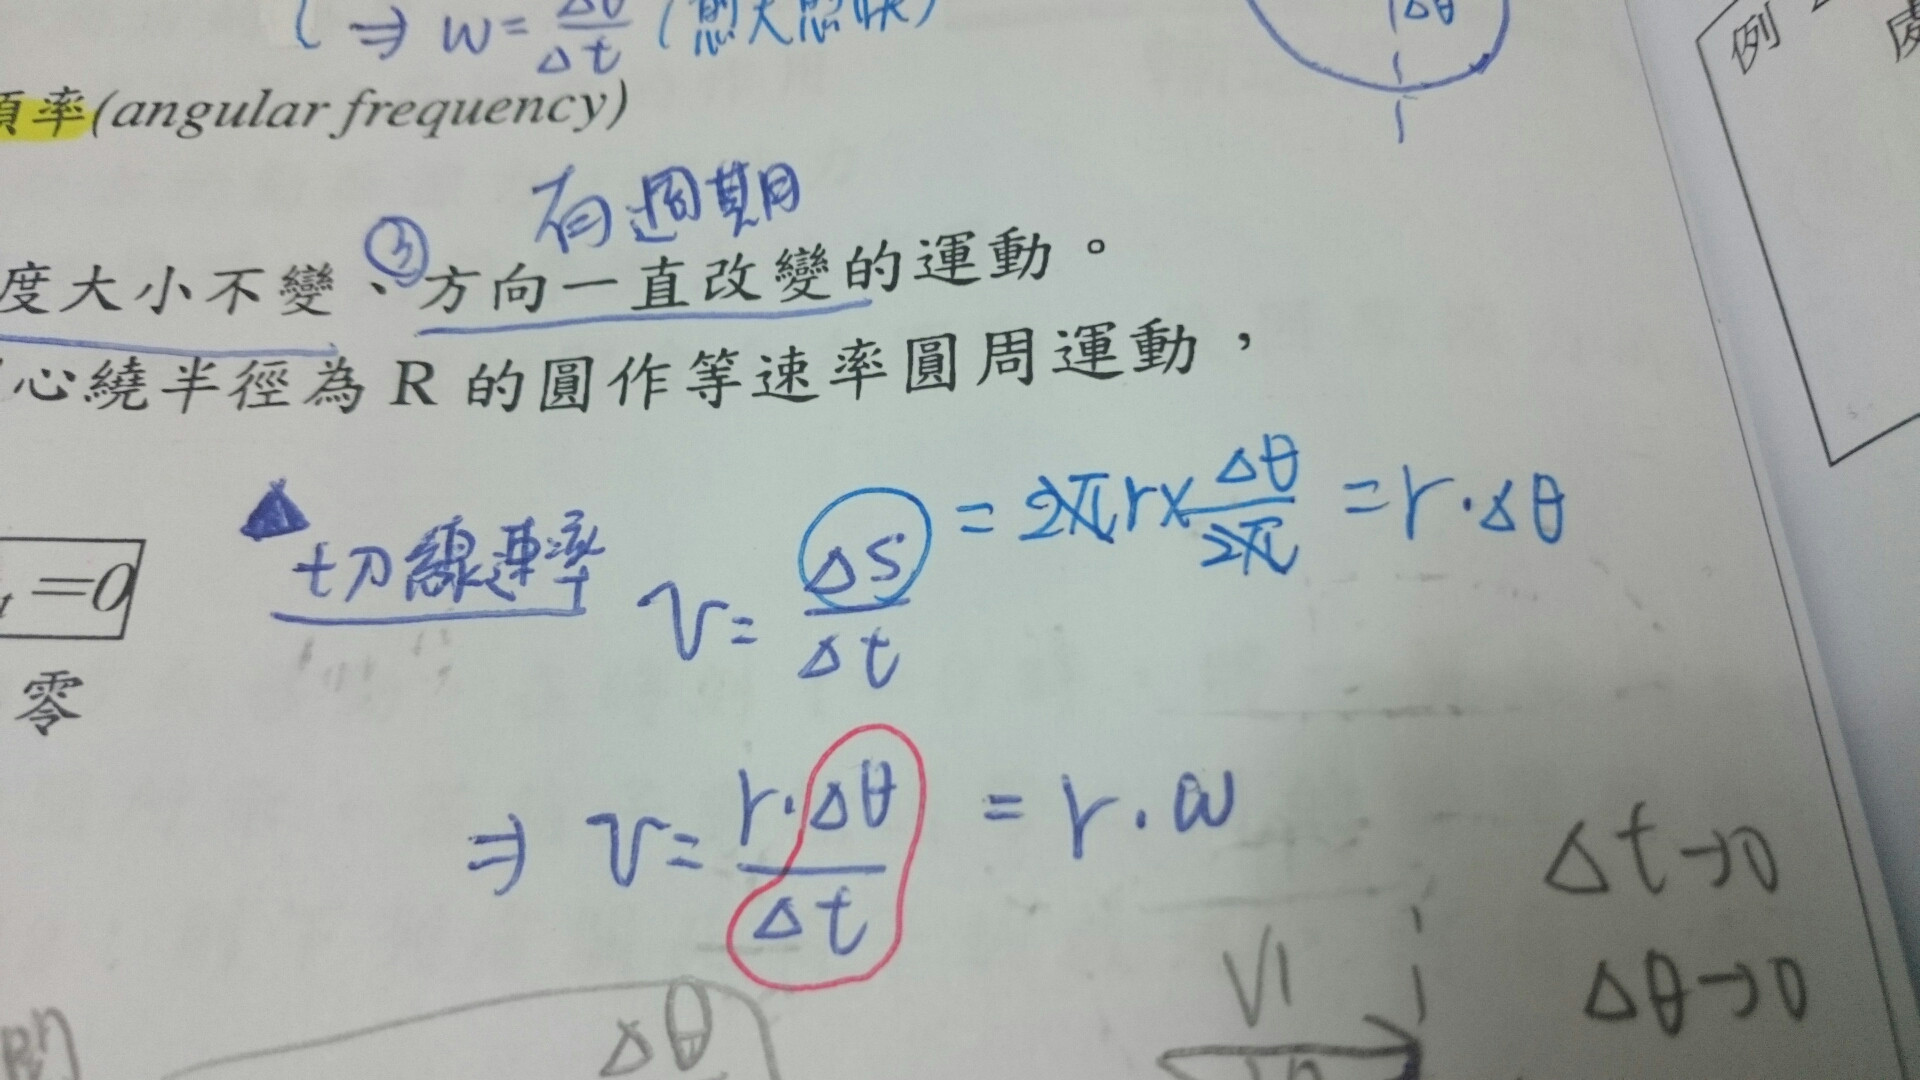 ⇒ w = Δθ/Δt (愈大愈快)
Δθ
例
率(angular frequency)
有週期
度大小不變、③方向一直改變的運動。
心繞半徑為 R 的圓作等速率圓周運動，
▲切線速率 v = Δs/Δt
= 2πr × Δθ/2π = r·Δθ
=0
零
⇒ v = r·Δθ/Δt = r·ω
Δt→0
Δθ→0
V1
Δθ